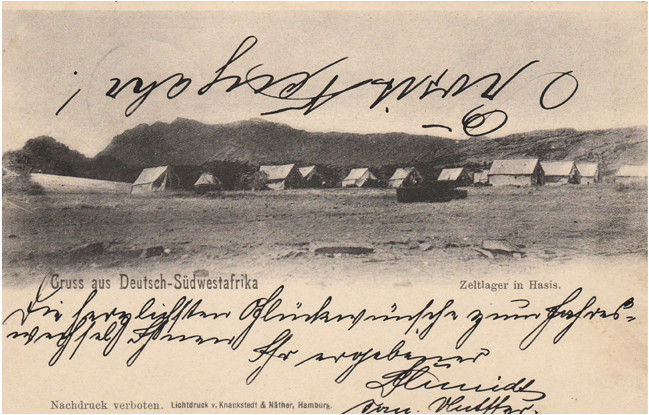 Prosit Neujahr!
Gruss aus Deutsch-Südwestafrika
Zeltlager in Hasis.
Die herzlichsten Glückwünsche zum Jahres-
wechsel Ihnen
Ihr ergebener
Schmidt
Nachdruck verboten. Lichtdruck v. Knackstedt & Näther, Hamburg.